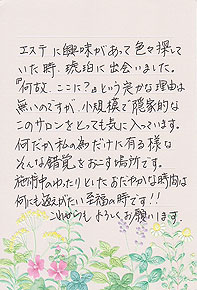 エステに興味があって色々探して
いた時、琥珀に出会いました。
『何故、ここに?』という定かな理由は
無いのですが、小規模で隠家的な
このサロンをとっても気に入っています。
何だか私の為だけに有る様な
そんな錯覚をおこす場所です。
施術中のゆったりとしたおだやかな時間は
何にも返えがたい至福の時です!!
これからも よろしくお願いします。